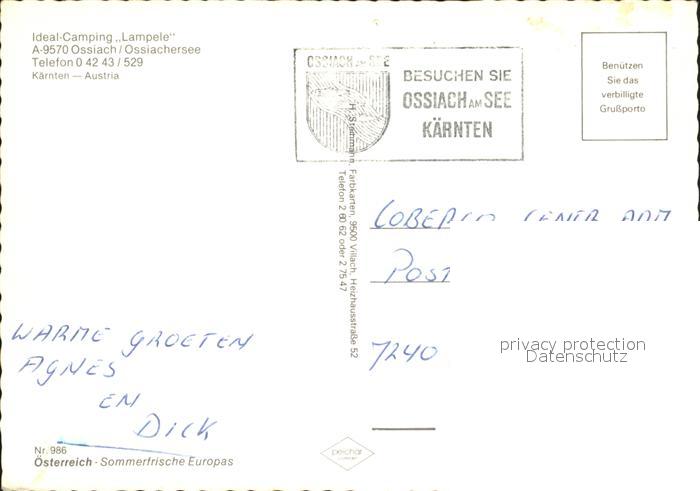 Ideal-Camping „Lampele"
A-9570 Ossiach / Ossiachersee
Telefon 0 42 43 / 529
Kärnten — Austria
OSSIACH AM SEE
BESUCHEN SIE
OSSIACH AM SEE
KÄRNTEN
Benützen
Sie das
verbilligte
Grußporto
H. Steinmann, Farbkarten, 9500 Villach, Heizhausstraße 52
Telefon 2 60 62 oder 2 75 47
POST
7240
privacy protection
Datenschutz
WARME GROETEN
AGNES
EN
DICK
Nr. 986
Österreich - Sommerfrische Europas